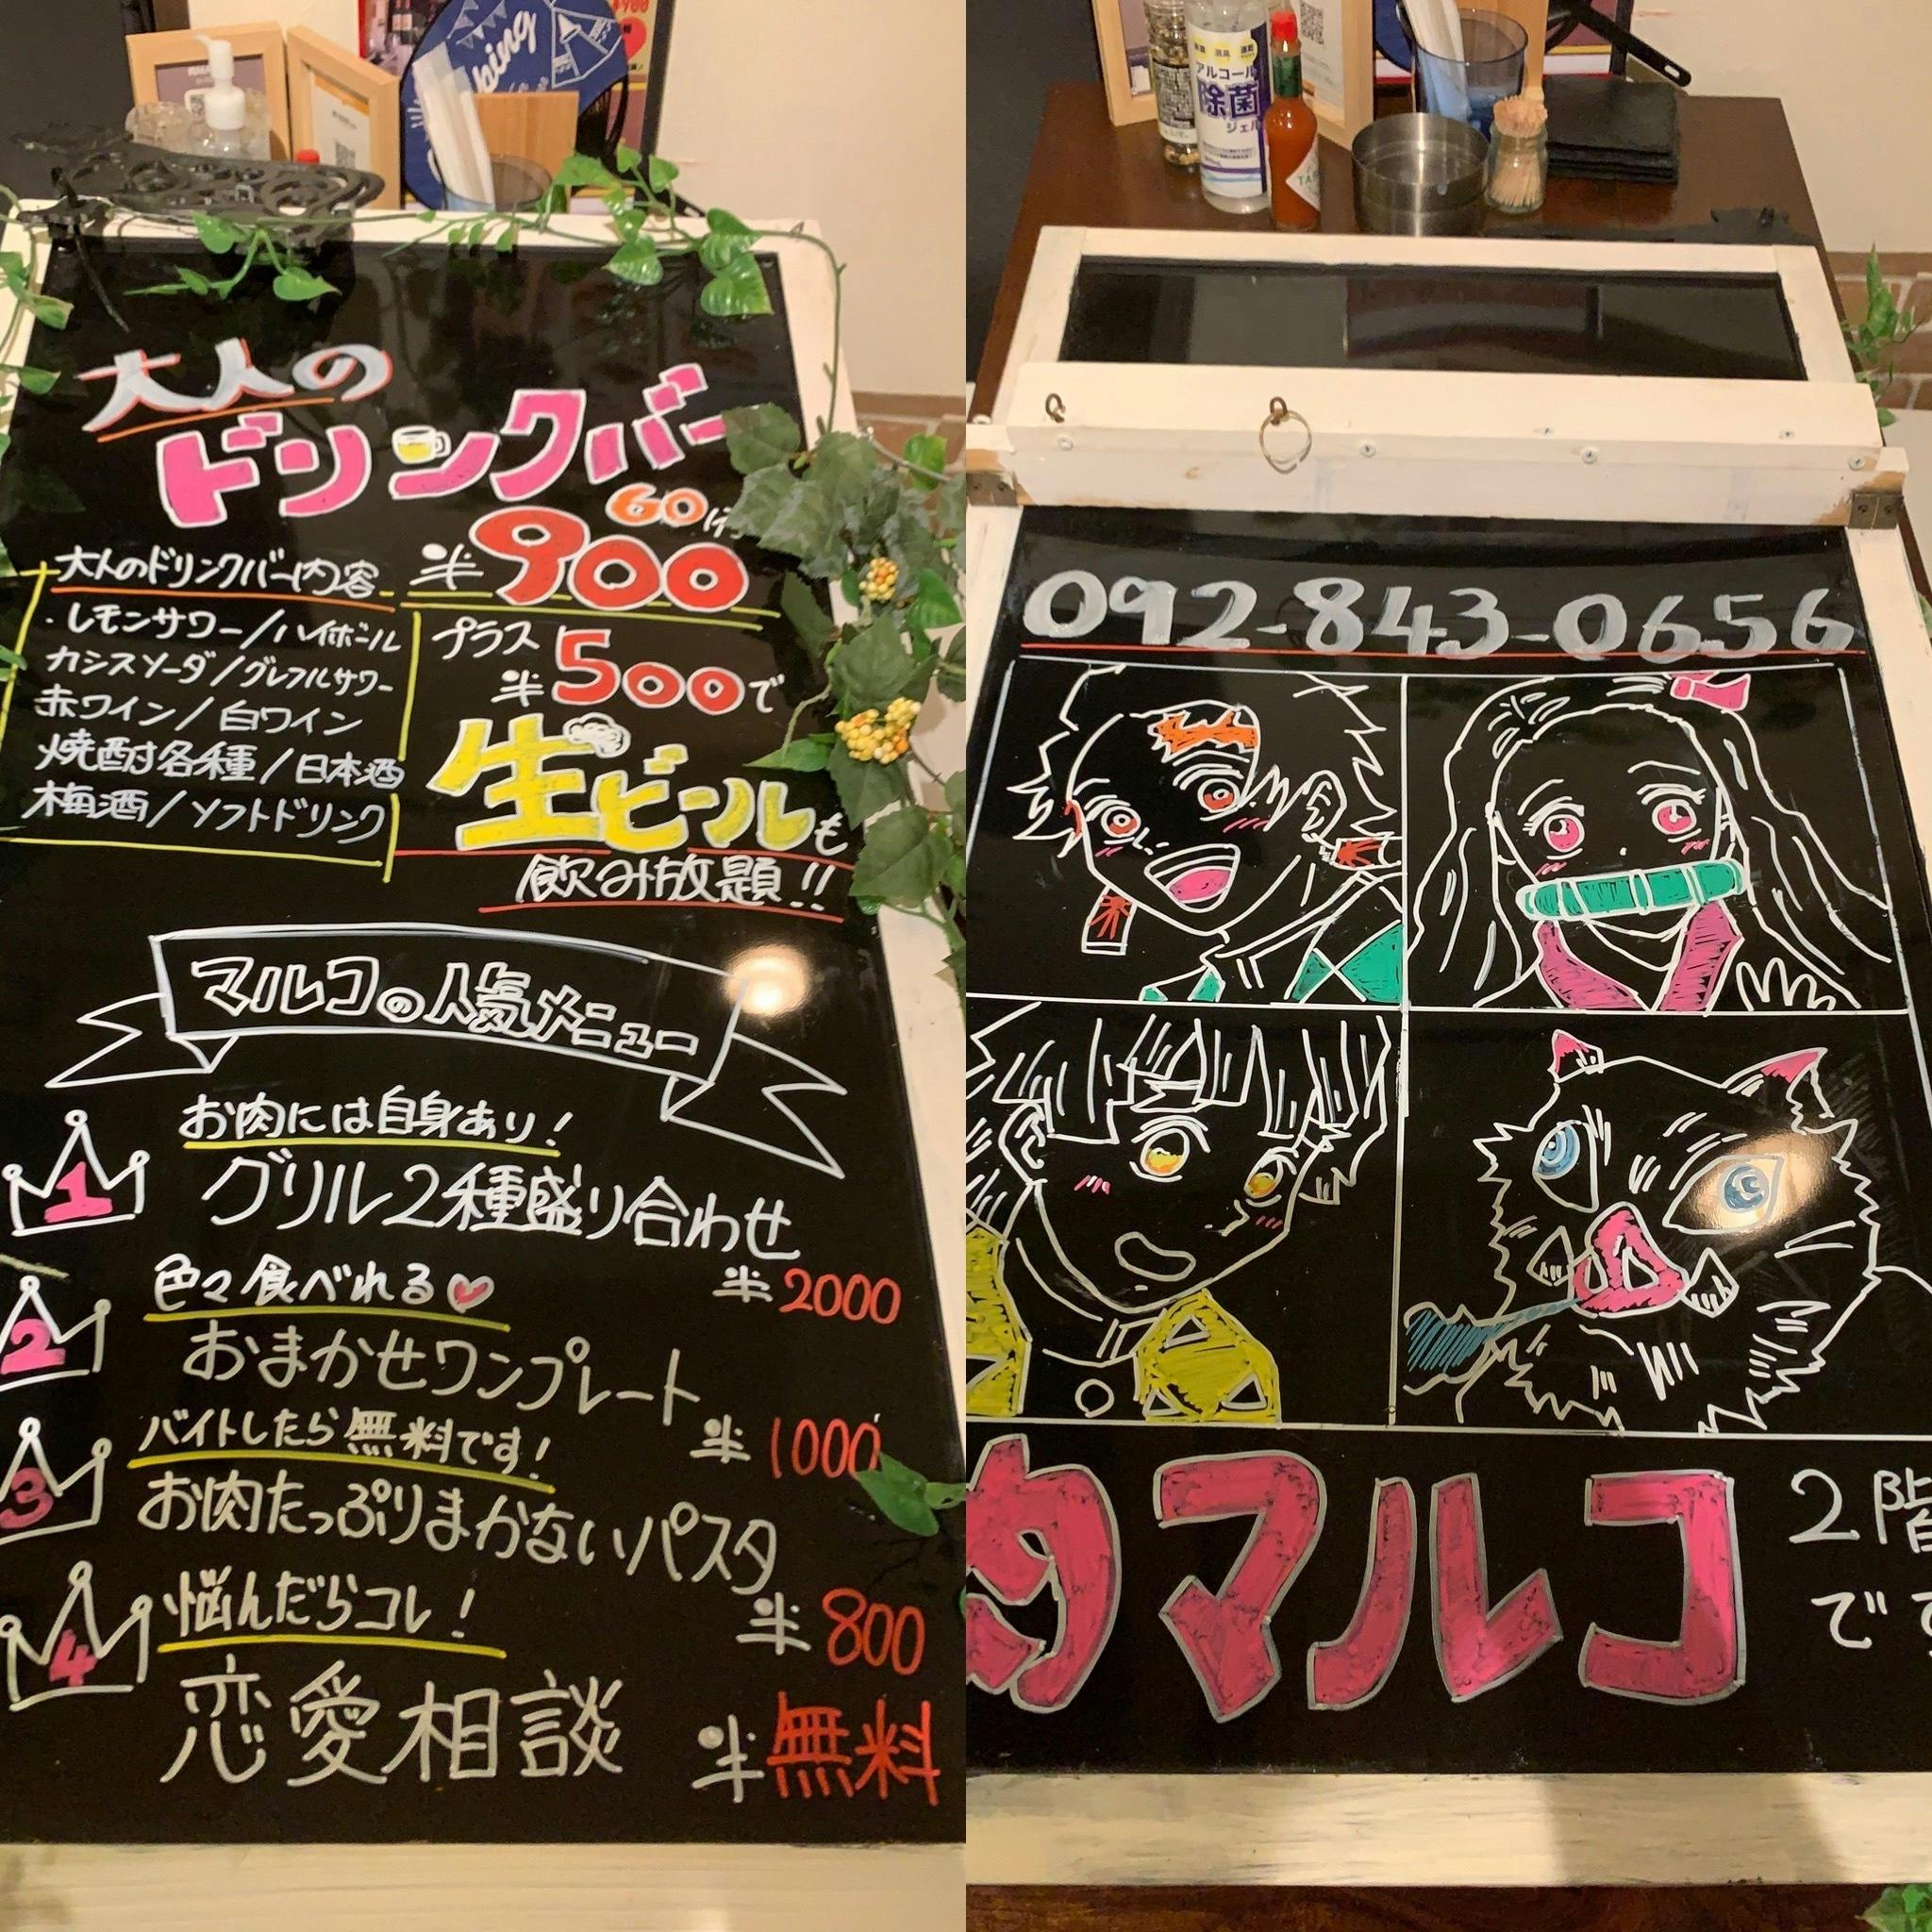 大人の
ドリンクバー
60分
¥900
大人のドリンクバー内容
・レモンサワー/ハイボール
カシスソーダ/グレフルサワー
赤ワイン/白ワイン
焼酎各種/日本酒
梅酒/ソフトドリンク
プラス
¥500で
生ビールも
飲み放題!!
マルコの人気メニュー
お肉には自身あり!
1 グリル2種盛り合わせ
¥2000
色々食べれる♡
2 おまかせワンプレート
¥1000
バイトしたら無料です!
3 お肉たっぷりまかないパスタ
¥800
悩んだらコレ!
4 恋愛相談
¥無料
アルコール
除菌
ジェル
092-843-0656
マルコ
2階
です